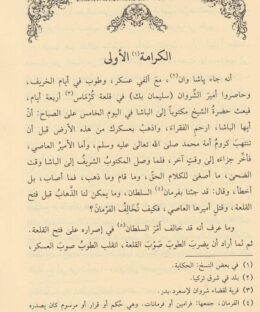 الكرامة(١) الأولى
أنه جاء پاشا وان(٢)، مع ألفي عسكر، وطوب في أيام الخريف،
وحاصروا أميرَ الشَّروان (سليمان بك) في قلعة كُرْمَاس(٣) أربعة أيام،
فبعث حضرةُ الشيخ مكتوباً إلى الباشا في اليوم الخامس على الصباح: أنْ
أيها الباشا، ارحم الفقراءَ، واذهبْ بعسكرك من هذه الأرض قبل أن
تنتهبَ كرومُ أمة محمد صلى الله تعالى عليه وسلم، وأما الأميرُ العاصي،
فأخِّر جزاءه إلى وقتٍ آخر، فلما وصل المكتوبُ الشريفُ إلى الباشا وقت
الضحى، ما أصغى للكلام الحقِّ، وما قام وما ذهب، فما أصاب، بل
أخطأ، وقال: قد جئنا بفرمان(٤) السلطان، وما يمكن لنا الذَّهابُ قبل فتح
القلعة، وقتلِ أميرها العاصي، فكيف نُخَالِفُ الفرمَانَ؟
وما عرف أنه قد خالف أمْرَ السلطان(٥) في إصراره على فتح القلعة.
ثم لما أراد أن يضرب الطوبَ صَوْبَ القلعة، انقلب الطوبُ صوبَ العسكر،
(١) في بعض النسخ: الحكاية.
(٢) بلد في شرق تركيا.
(٣) قرية لقضاء شروان لاسعرد.
(٤) الفرمان، جمعها: فرامين أو فرمانات. وهي حُكم أو قرار أو مرسوم كان يصدره